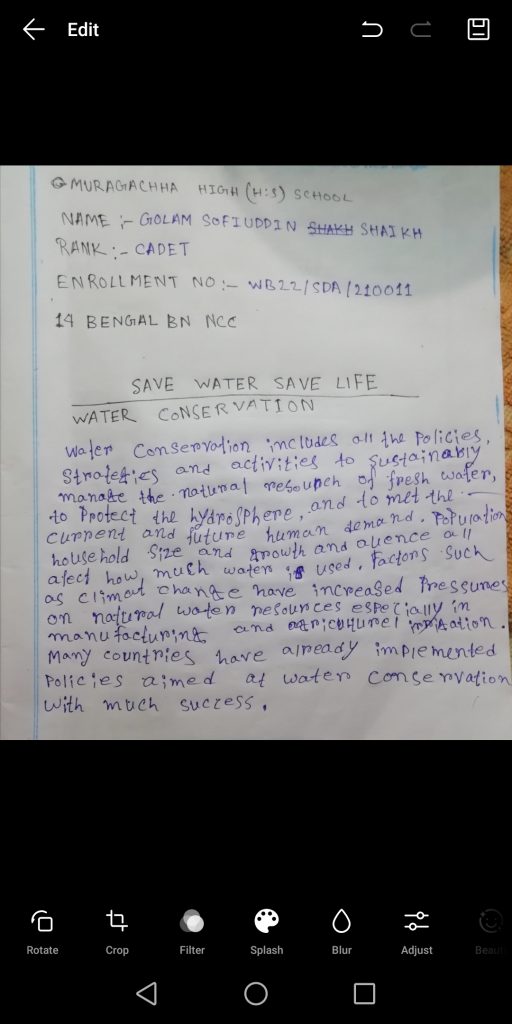 Edit
MURAGACHHA HIGH (H:S) SCHOOL
NAME :- GOLAM SOFIUDDIN SHAKH SHAIKH
RANK :- CADET
ENROLLMENT NO :- WB22/SDA/210011
14 BENGAL BN NCC
SAVE WATER SAVE LIFE
WATER CONSERVATION
Water Conservation includes all the Policies,
Strategies and activities to sustainably
manage the natural resounch of fresh water,
to Protect the hydrosphere, and to met the
current and future human demand. Population
household size and growth and auence all
afect how much water is used. Factors such
as climat change have increased Pressures
on natural water resources especially in
manufacturing and agricuturel irriation.
Many countries have already implemented
Policies aimed at water conservation
with much success.
Rotate Crop Filter Splash Blur Adjust Beau